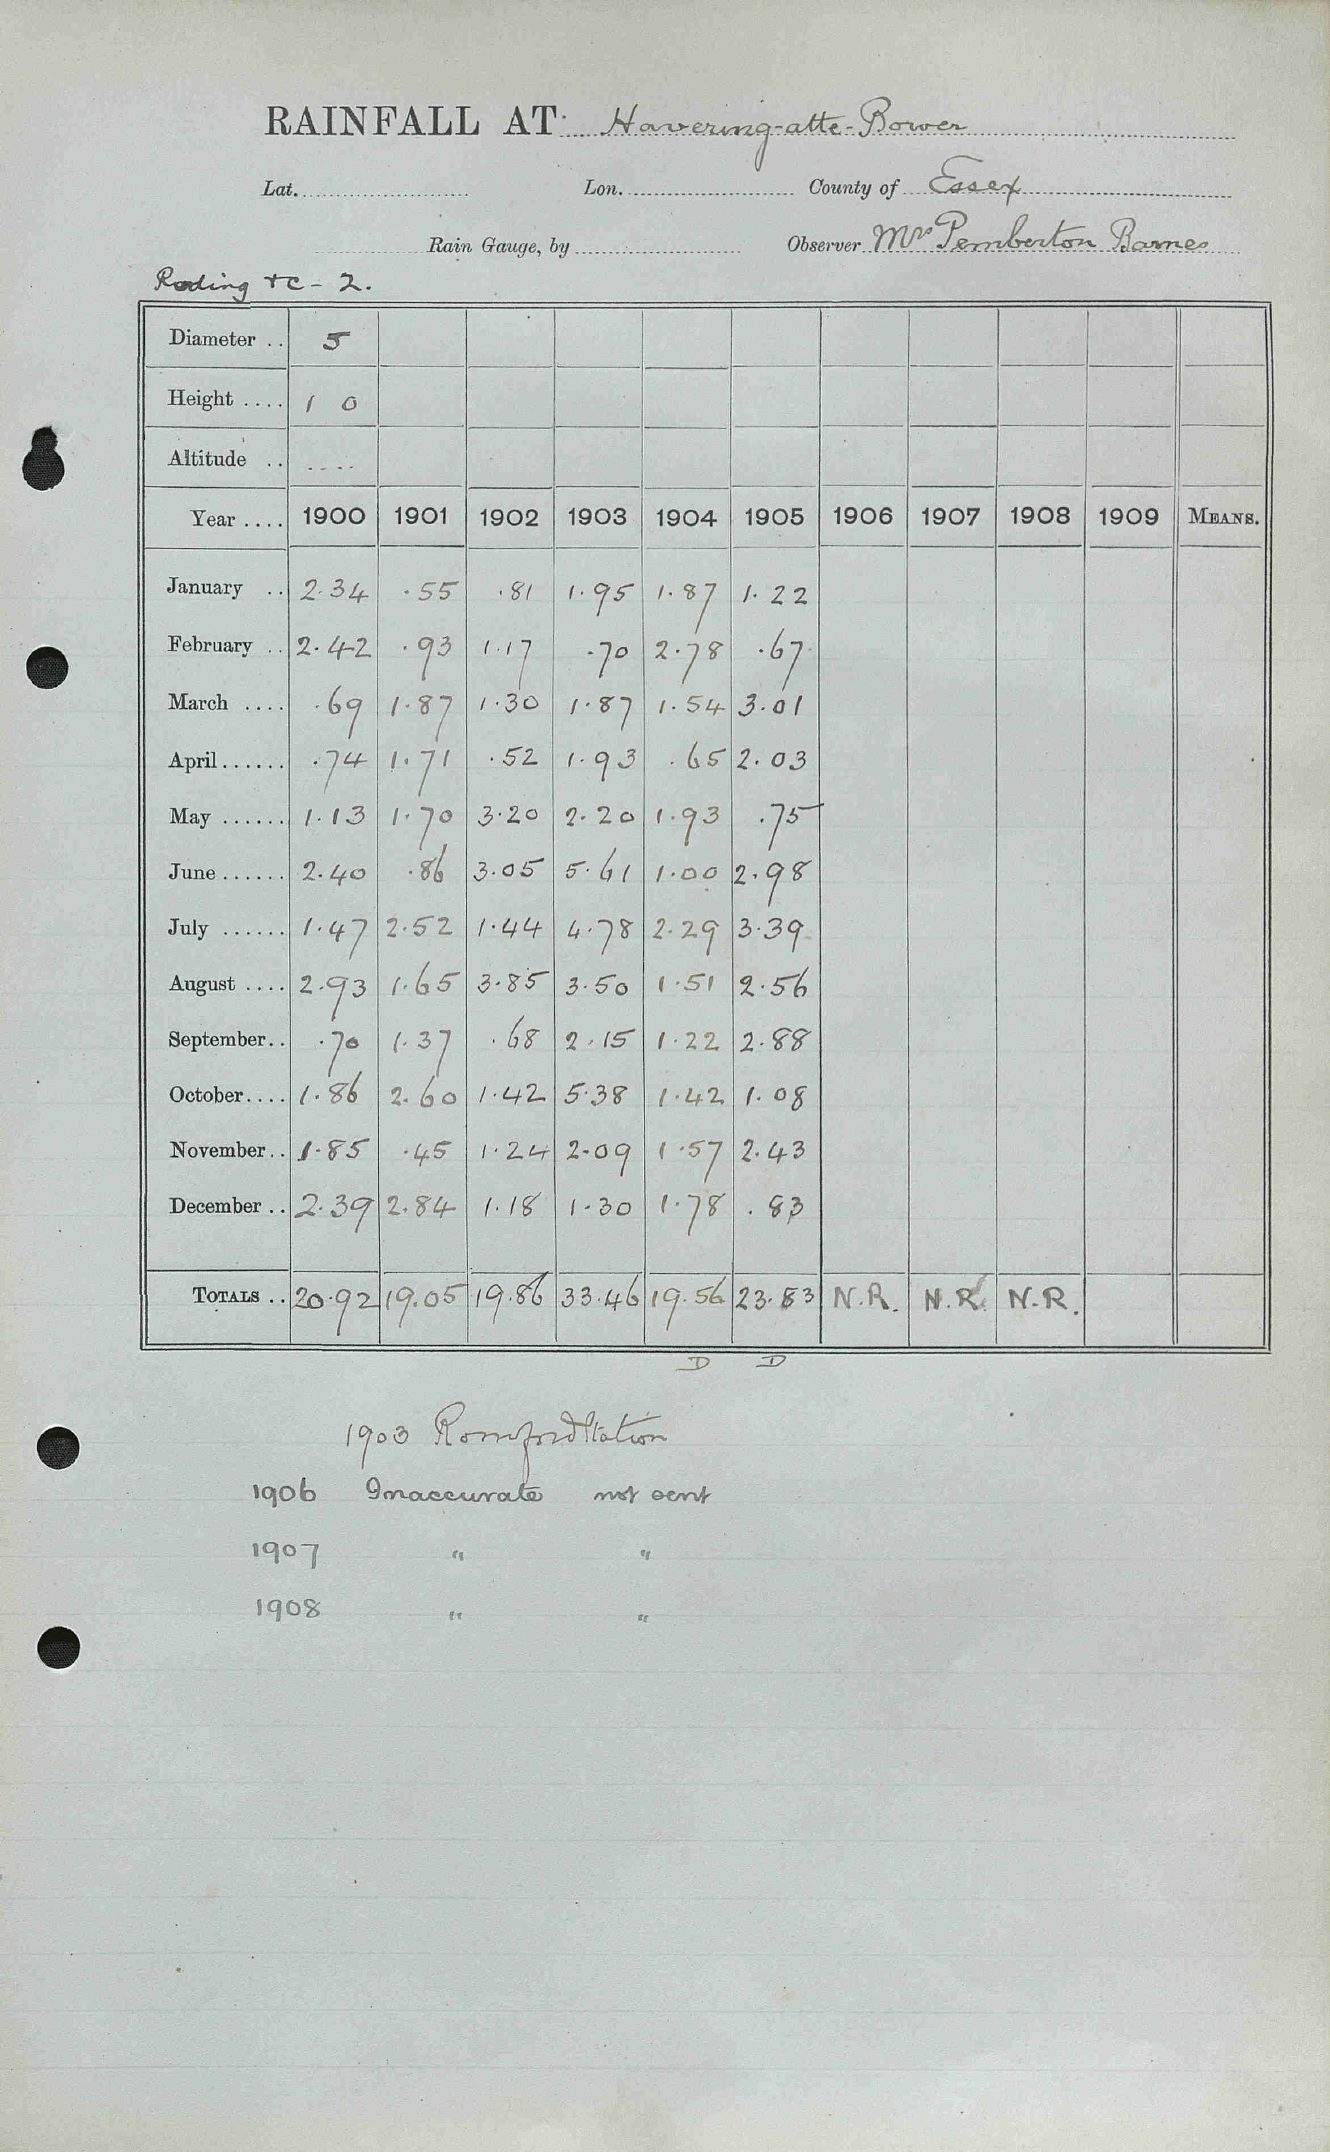 RAINFALL AT Havering-atte-Bower
Lat. Lon. County of Essex
Rain Gauge, by Observer Mrs Pemberton Barnes
Roding &c - 2.
Diameter .. 5
Height .... 1 0
Altitude .. ....
Year .... 1900 1901 1902 1903 1904 1905 1906 1907 1908 1909 MEANS.
January .. 2.34 .55 .81 1.95 1.87 1.22
February .. 2.42 .93 1.17 .70 2.78 .67
March .... .69 1.87 1.30 1.87 1.54 3.01
April...... .74 1.71 .52 1.93 .65 2.03
May ...... 1.13 1.70 3.20 2.20 1.93 .75
June...... 2.40 .86 3.05 5.61 1.00 2.98
July ...... 1.47 2.52 1.44 4.78 2.29 3.39
August .... 2.93 1.65 3.85 3.50 1.51 2.56
September.. .70 1.37 .68 2.15 1.22 2.88
October.... 1.86 2.60 1.42 5.38 1.42 1.08
November.. 1.85 .45 1.24 2.09 1.57 2.43
December .. 2.39 2.84 1.18 1.30 1.78 .83
TOTALS .. 20.92 19.05 19.86 33.46 19.56 23.83 N.R. N.R. N.R.
D D
1903 Romford Station
1906 Inaccurate not sent
1907 " "
1908 " "